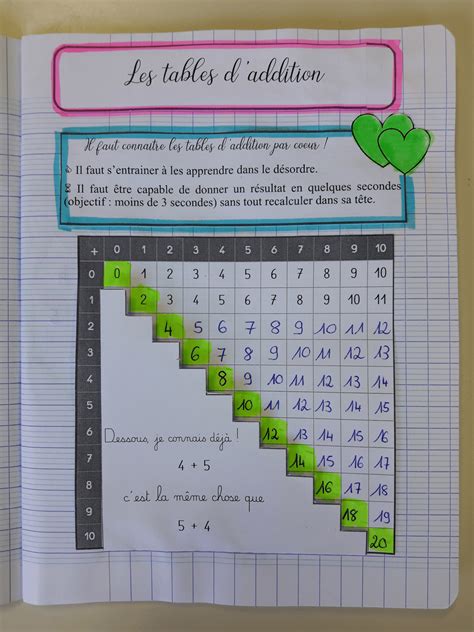 Les tables d'addition
Il faut connaitre les tables d'addition par coeur !
Il faut s'entrainer à les apprendre dans le désordre.
Il faut être capable de donner un résultat en quelques secondes
(objectif : moins de 3 secondes) sans tout recalculer dans sa tête.
+ 0 1 2 3 4 5 6 7 8 9 10
0 0 1 2 3 4 5 6 7 8 9 10
1 2 3 4 5 6 7 8 9 10 11
2 4 5 6 7 8 9 10 11 12
3 6 7 8 9 10 11 12 13
4 8 9 10 11 12 13 14
5 10 11 12 13 14 15
6 12 13 14 15 16
Dessous, je connais déjà !
7 14 15 16 17
4 + 5
8 16 17 18
c'est la même chose que
9 18 19
5 + 4
10 20